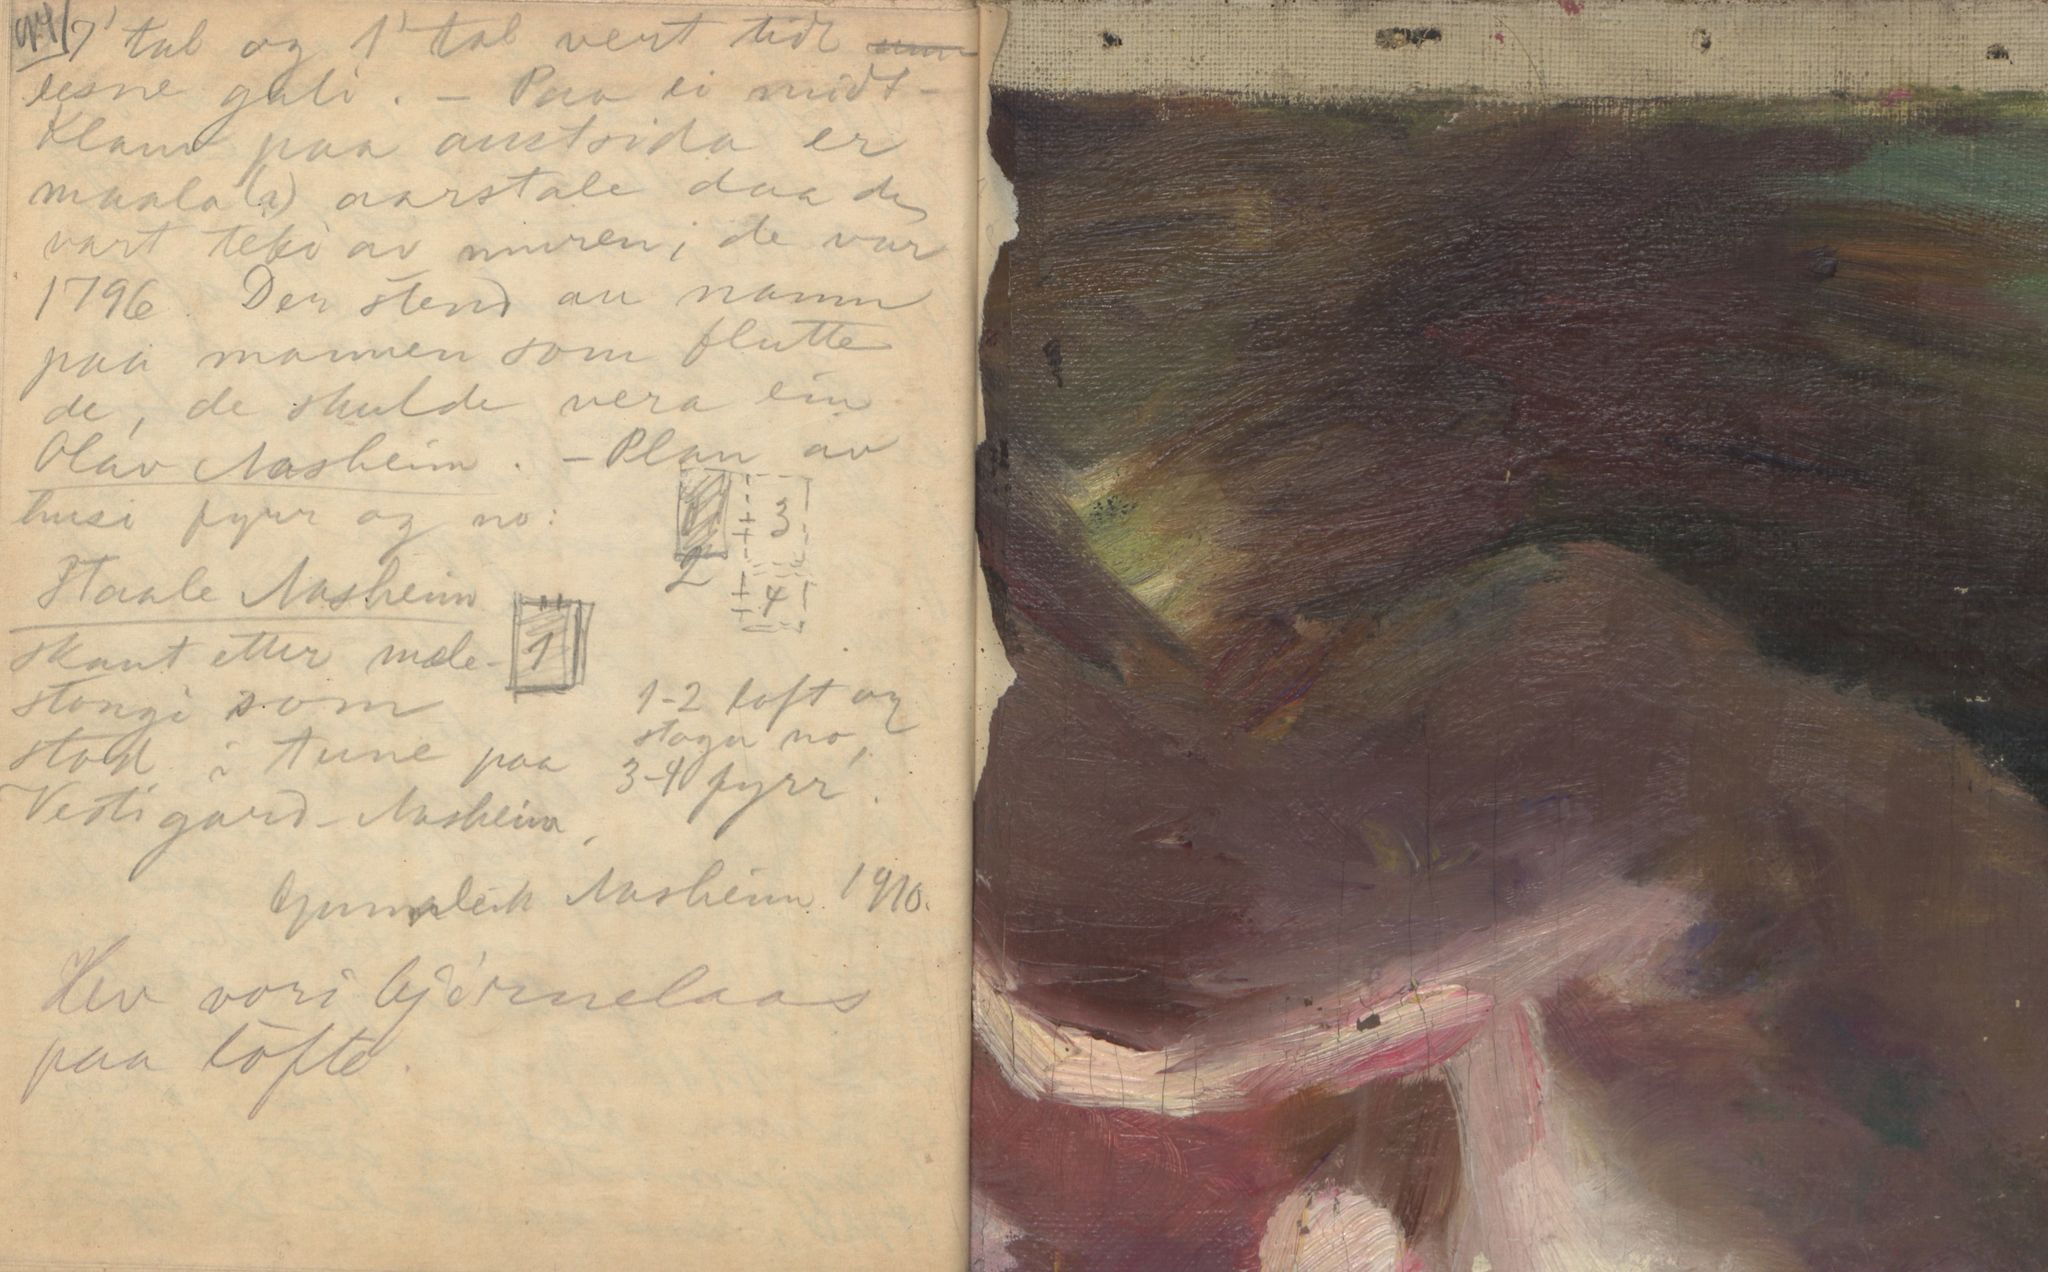 94/ 7' tal og 1' tal vert tidt
lesne gali. - Paa ei midt-
klam paa austsida er
maala(a) aarstale daa de
vart teke av muren; de var
1796. Der stend au namn
paa mannen som flutte
de, de skulde vera ein
Olav Aasheim. - Plan av
husi fyrr og no:
1 3
2
4
Staale Aasheim
skaut etter mæle-
1
stongi som
stod i tune paa
Vestigard-Aasheim.
1-2 loft og
stogu no,
3-4 fyrr.
Gunnleik Aasheim 1910.
Hev vori bjørnelaas
paa lofte.